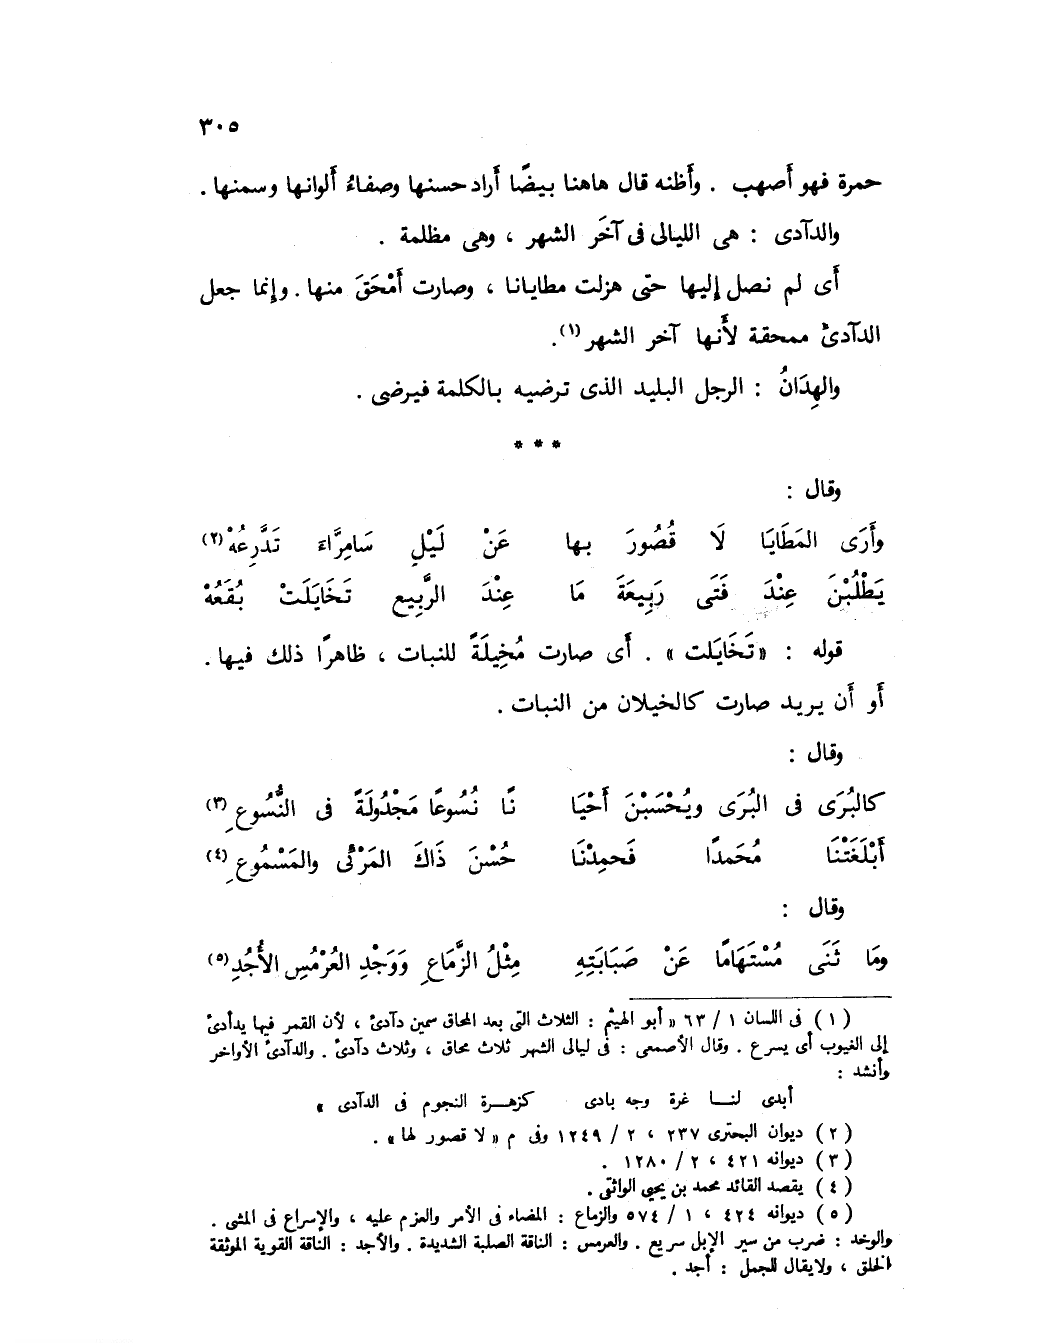 ٣٠٥
حمرة فهو أَصهب . وأَظنه قال هاهنا بيضًا أَراد حسنها وصفاءُ أَلوانها وسمنها .
والدآدى : هى الليالى فى آخَر الشهر ، وهى مظلمة .
أَى لم نصل إليها حتى هزلت مطايانا ، وصارت أَمْحَقَ منها . وإنما جعل
الدآدئُ ممحقة لأَنها آخر الشهر (١).
والهِدَانُ : الرجل البليد الذى ترضيه بالكلمة فيرضى .
* * *
وقال :
وأَرَى المَطَايَا لَا قُصُورَ بها عَنْ لَيْلِ سَامِرَّاءَ تَدَّرِعُهْ (٢)
يَطْلُبْنَ عِنْدَ فَتَى رَبِيعَةَ مَا عِنْدَ الرَّبِيع تَخَايَلَتْ بُقَعُهْ
قوله : «تَخَايَلت » . أَى صارت مُخِيلَةً للنبات ، ظاهرًا ذلك فيها .
أَو أَن يريد صارت كالخيلان من النبات .
وقال :
كالبُرَى فى البُرَى ويُحْسَبْنَ أَحْيَا نًا نُسُوعًا مَجْدُولَةً فى النُّسُوعِ (٣)
أَبْلَغَتْنَا مُحَمدًا فَحمِدْنَا حُسْنَ ذَاكَ المَرْئى والمَسْمُوعِ (٤)
وقال :
ومَا ثَنَى مُسْتَهَامًا عَنْ صَبَابَتِهِ مِثْلُ الزَّمَاعِ وَوَجْدِ العُرْمُسِ الأُجُدِ (٥)
(١) فى اللسان ١ / ٦٣ « أبو الهيثم : الثلاث التى بعد المحاق سمين دآدئ ، لأن القمر فيها يدأدئ
إلى الغيوب أى يسرع . وقال الأصمعى : فى ليالى الشهر ثلاث محاق ، وثلاث دآدئ . والدآدئ الأواخر
وأنشد :
أبدى لنـــا غرة وجه بادى كزهـــرة النجوم فى الدآدى »
(٢) ديوان البحترى ٢٣٧ ، ٢ / ١٢٤٩ وفى م « لا قصور لها » .
(٣) ديوانه ٤٢١ ، ٢ / ١٢٨٠ .
(٤) يقصد القائد محمد بن يحيى الواثقى .
(٥) ديوانه ٤٢٤ ، ١ / ٥٧٤ والزماع : المضاء فى الأمر والعزم عليه ، والإسراع فى المشى .
والوخد : ضرب من سير الإبل سريع . والعرمس : الناقة الصلبة الشديدة . والأجد : الناقة القوية الموثقة
الخلق ، ولايقال للجمل : أجد .